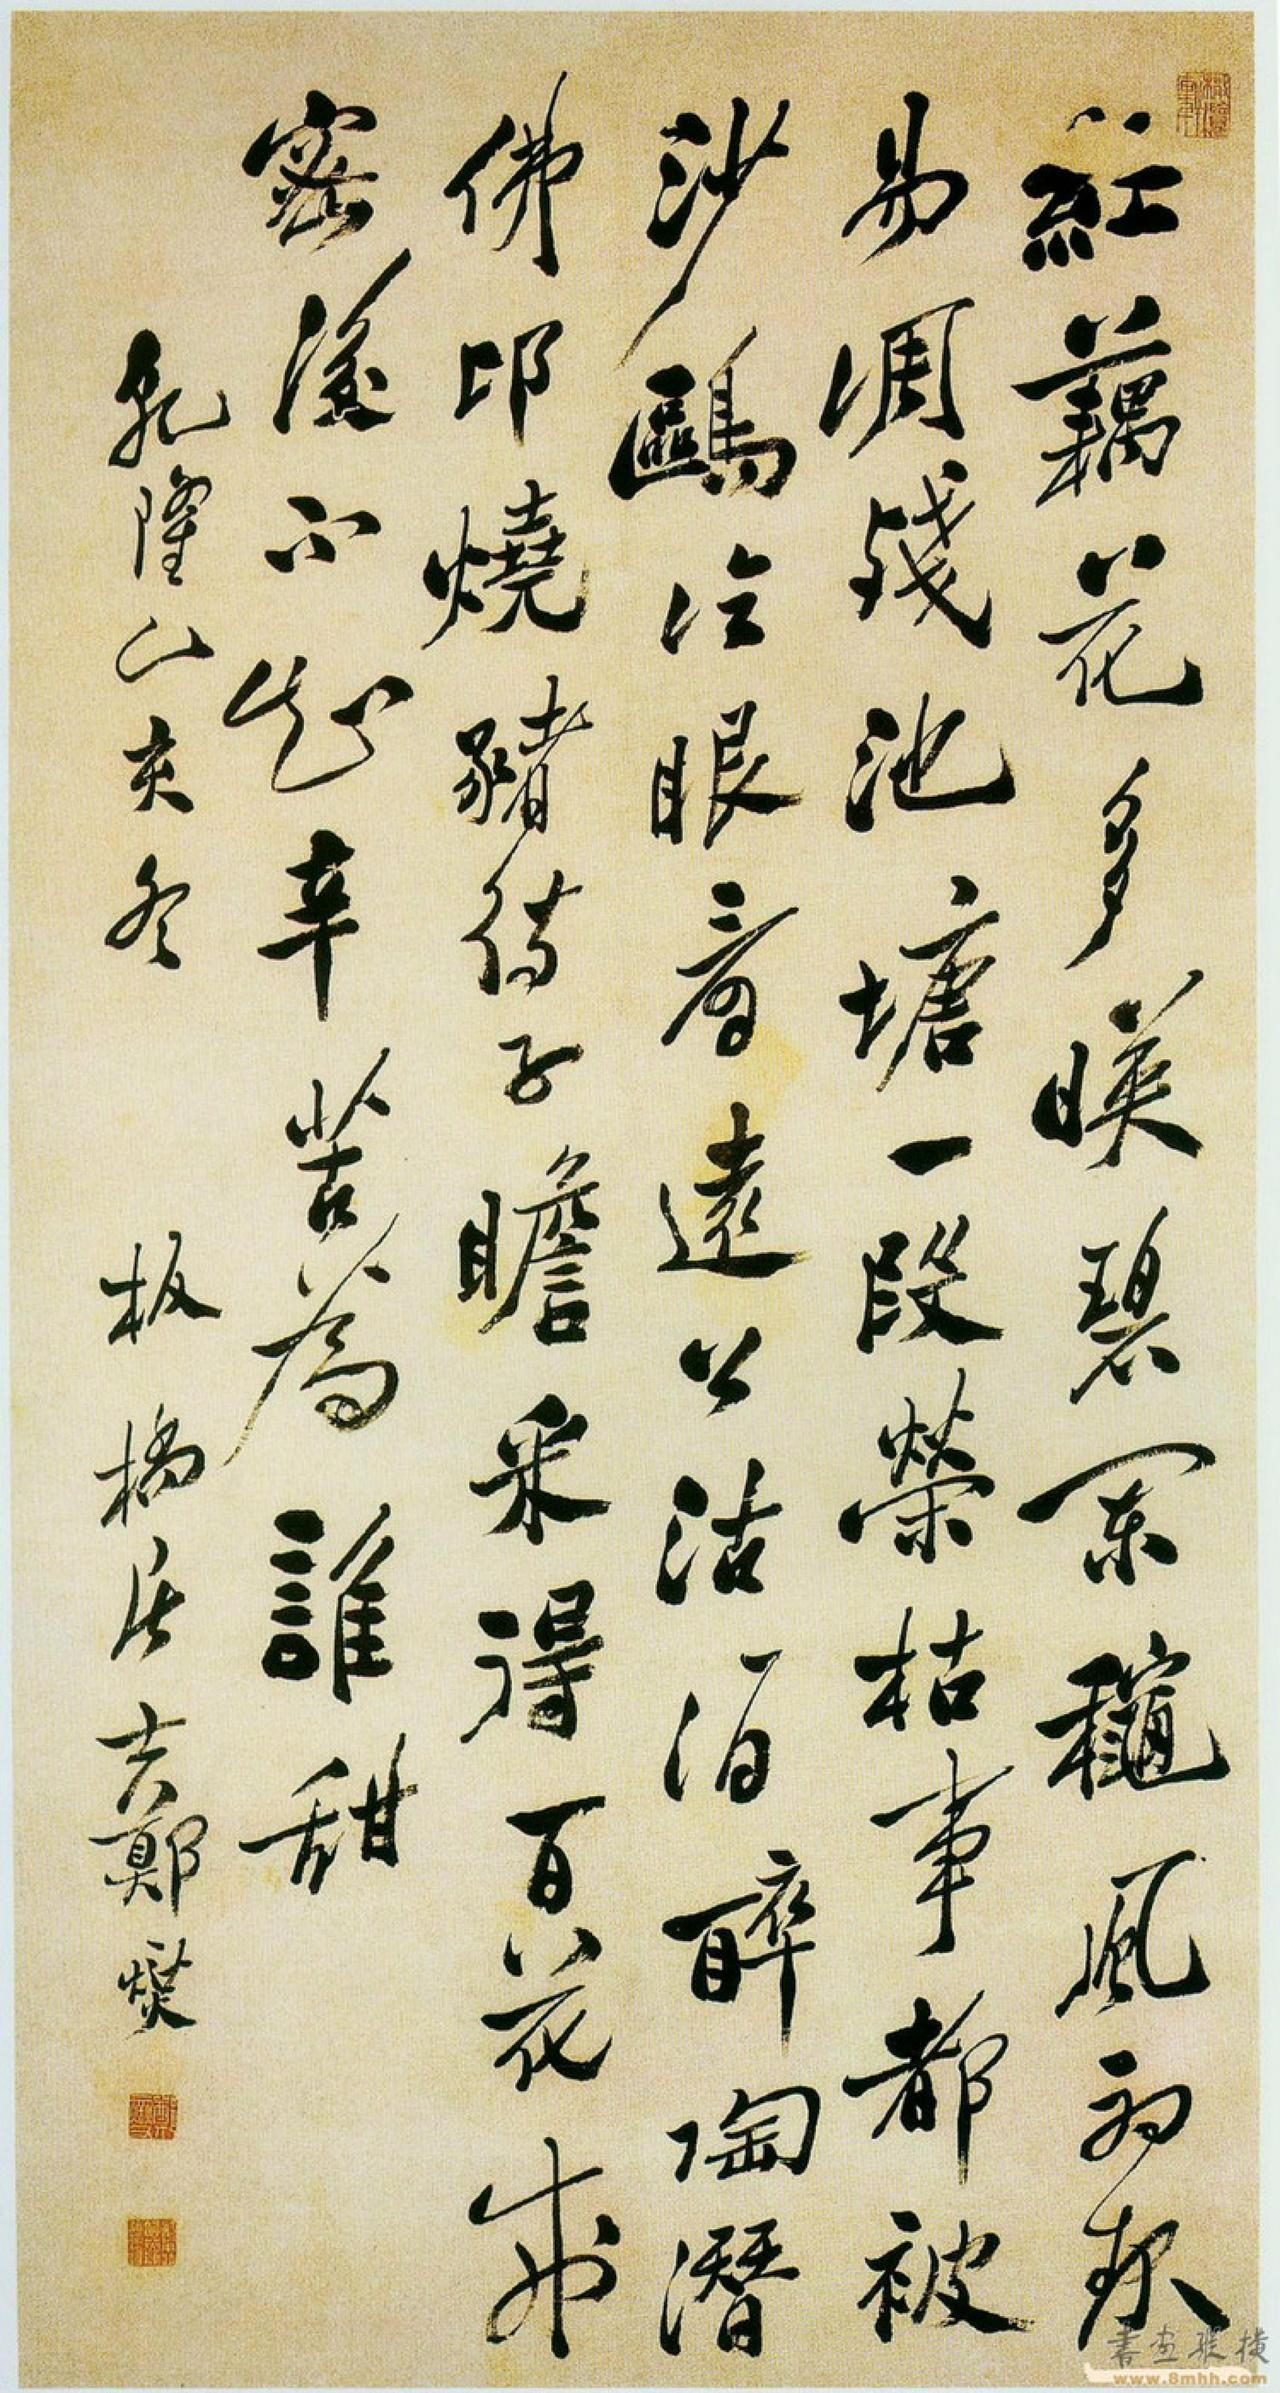 紅藕花多暎碧闌龝風初
易凋殘池塘一段榮枯事都被
沙鷗冷眼看遠公沽酒醉陶潛
佛印燒豬待子瞻采得百花成
蜜後不知辛苦為誰甜
乾隆乙亥冬 板橋居士鄭燮
書畫縱橫
www.8mhh.com